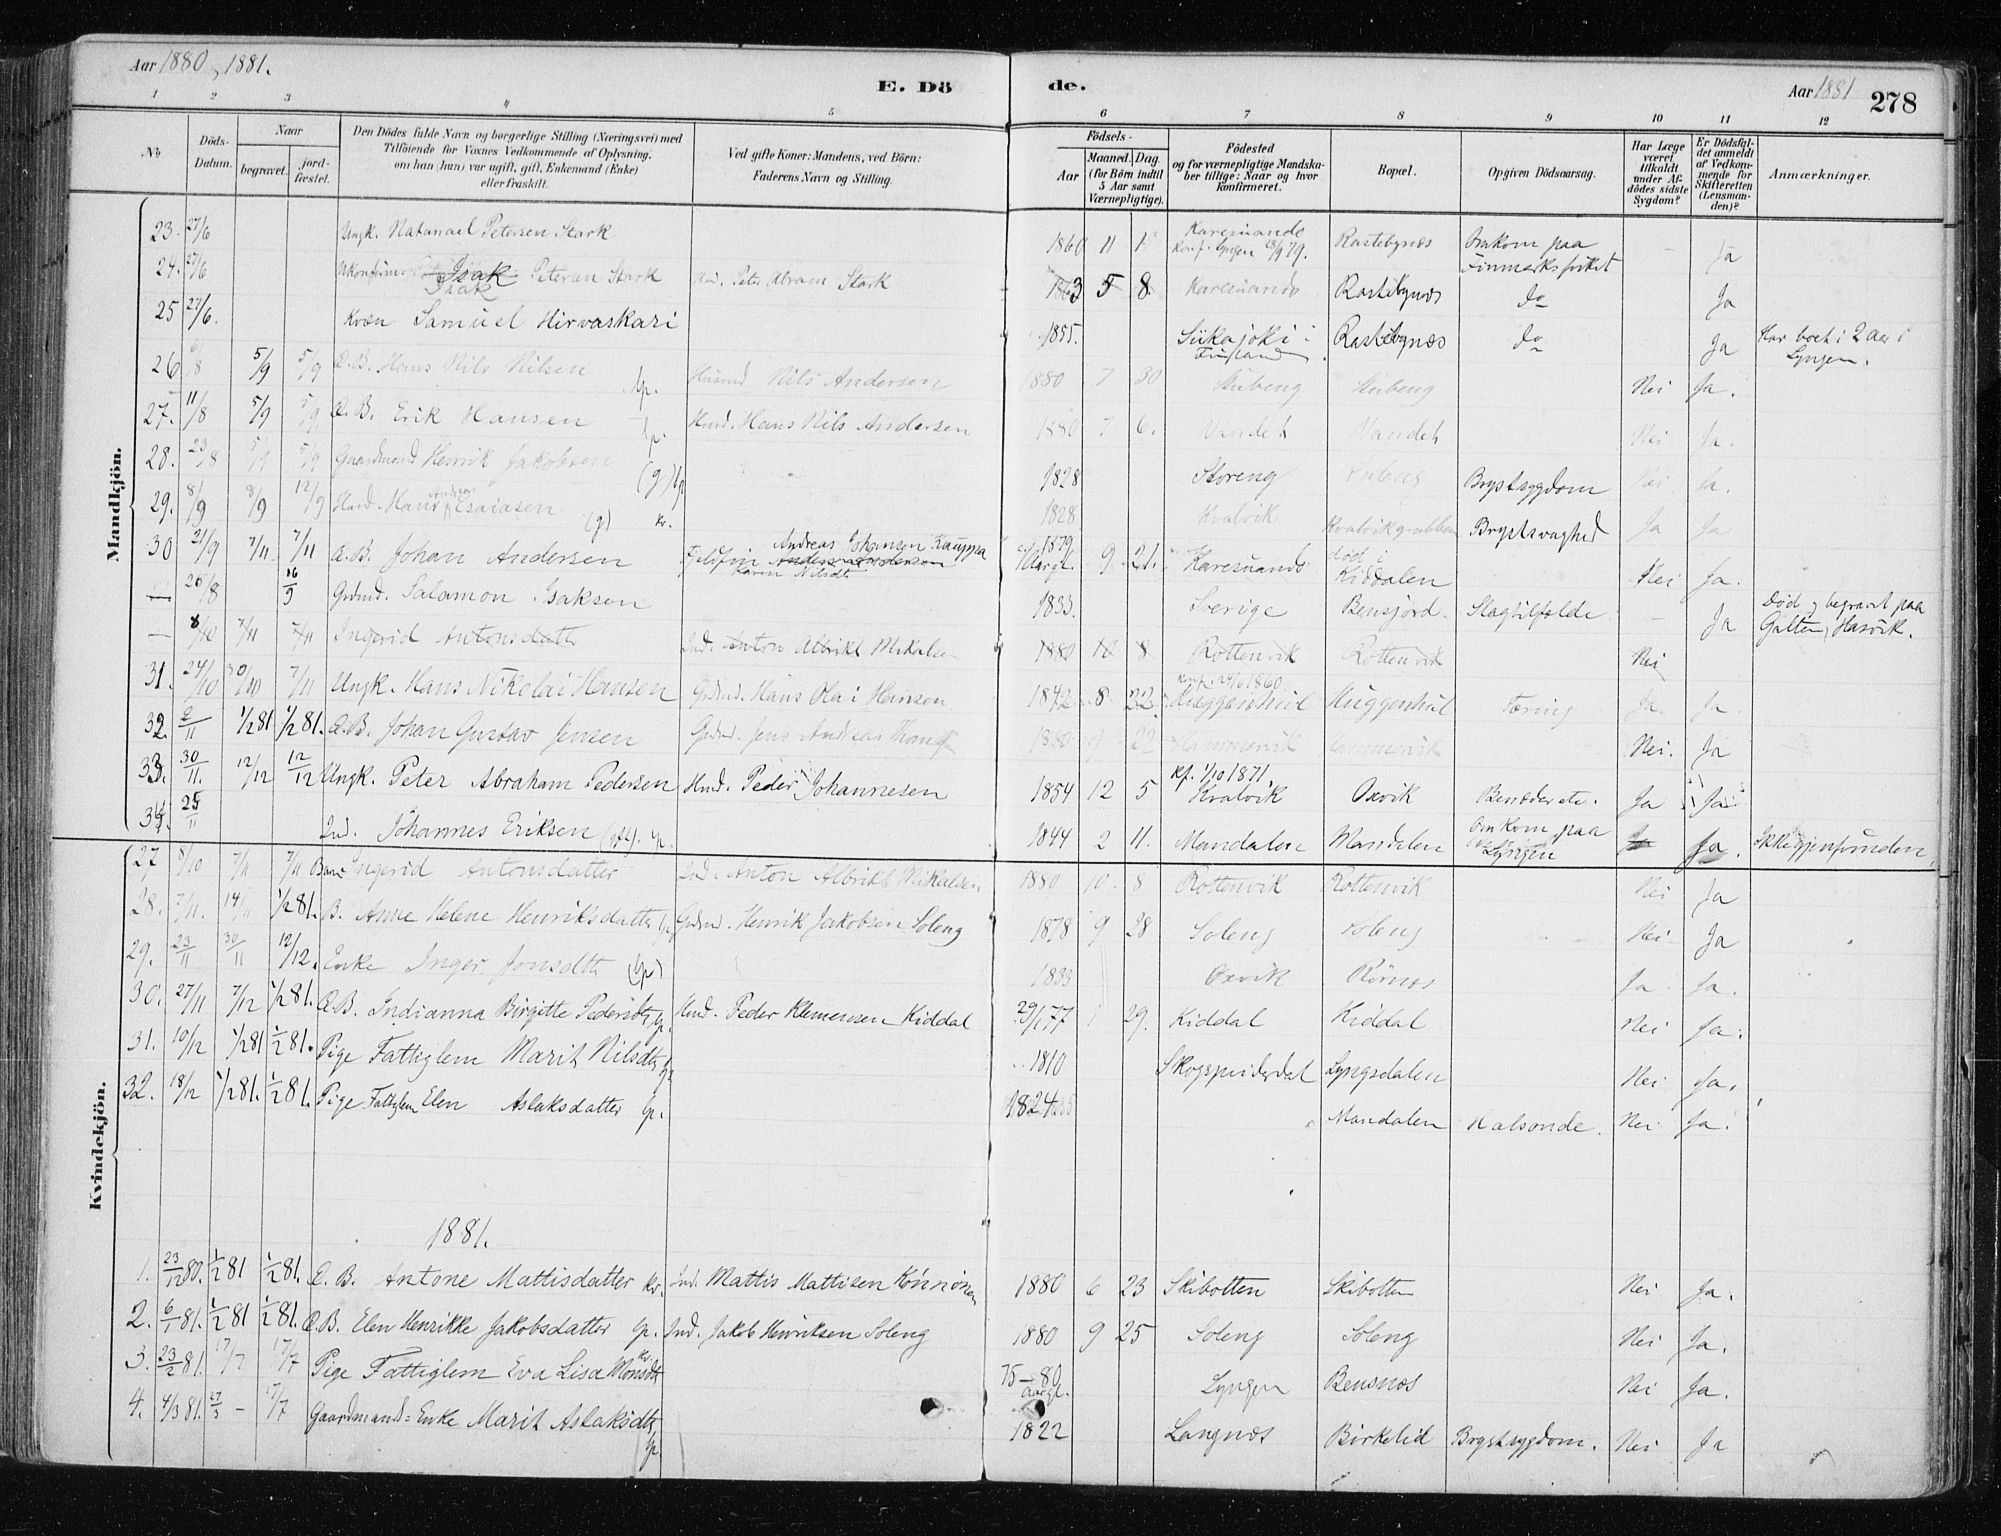 Aar 1880, 1881.
E. Dö
de.
Aar 1881
278
1 2 3 4 5 6 7 8 9 10 11 12
No
Döds-Datum.
Naar
begravet.
jord-fæstet.
Den Dödes fulde Navn og borgerlige Stilling (Næringsvei) med
Tilföiende for Voxnes Vedkommende af Oplysning,
om han (hun) var ugift, gift, Enkemand (Enke)
eller fraskilt.
Ved gifte Koner: Mandens, ved Börn:
Faderens Navn og Stilling.
Födsels-
Aar
Maaned. Dag.
(for Börn indtil
5 Aar samt
Værnepligtige).
Födested
og for værnepligtige Mandska-
ber tillige: Naar og hvor
konfirmeret.
Bopæl.
Opgiven Dödsaarsag.
Har Læge
været
tilkaldt
under Af-
dödes sidste
Sygdom?
Er Dödsfal-
det anmeldt
af Vedkom-
mende for
Skifteretten
(Lensman-
den)?
Anmærkninger.
Mandkjön.
23. 27/6 Ungk. Natanael Petersen Stark 1860 11 Karesuando Konf. Lyngen 79. Rastebynæs Omkom paa Finmarksfisket - Ja
24. 27/6 Isak Petersen Stark Peter Abram Stark 1863 5 8 Karesuando Rastebynæs do Ja
25 27/6. Kvæn Samuel Hirvaskari 1855. Siikajoki i Finland Rastebynæs do Ja Har boet i 2 Aar i Lyngen.
26 6/8 5/9 5/9 Æ.B. Hans Nils Nilsen Lp. Husmd Nils Andersen 1880 7 30 Stubeng Stubeng Nei Ja.
27. 11/8 5/9 5/9 Æ.B. Erik Hansen Lp. Husmd. Hans Nils Andersen 1880 7 6. Nei Ja.
28. 23/8 5/9 5/9 Gaardmand Henrik Jakobsen (g) Lp 1828 Storeng Brystsygdom Nei Ja.
29. 8/9 8/9 12/9 Hans Andreas Esaiasen (g) kv. 1828 Kvalvik Brystsvaghed Ja Ja
30 21/9 7/11 7/11 Æ.B. Johan Andersen Andreas Johansen Kauppa 1879 9 21. Karesuando død i Kiddalen Nei Ja.
— 20/8 16/9 Grdmd. Salamon Isaksen 1833. Sverige Bensjord. Slagtilfælde - Ja Død og begravet paa Galten, Hasvik.
— 8/10 7/11 7/11 Ingerid Antonsdatter Ind. Anton Albrikt Mikalsen 1880 10 8 Rottenvik Rottenvik Nei
31. 24/10 30/10 7/11 Ungk. Hans Nikolai Hansen Grdmd. Hans Olai Hansen 1842 8 22 1860. Muggenhul Tæring Ja. Ja.
32. 2/11 1/2 81 1/2 81. Æ.B. Johan Gustav Jensen Grdmd. Jens Andreas 1880 9 22 Nei. Ja
33. 30/11. 12/12 12/12 Ungk. Peter Abraham Pedersen Husmd. Peder Johannesen 1854 12 5 Kf. 1/10 1871 Kvalvik Oxvik Benædder etc. Ja Ja
34. 25/11 Ind. Johannes Eriksen (g). Lp. 1844 2 11. Mandalen Mandalen Omkom paa Lyngen Ja. Ikke gjenfunden.
Kvindekjön.
27 8/10 7/11 7/11 Barn Ingerid Antonsdatter Ind. Anton Albrikt Mikalsen 1880 10. 8 Rottenvik Rottenvik Nei Ja
28. 7/11. 14/11 1/2 81. B. Anne Helene Henriksdatter Lp Grdmd. Henrik Jakobsen Soleng 1878 9 28 Soleng Soleng Nei. Ja
29. 23/11 30/11 12/12. Enke Inger Jonsdtr (Lp) 1833 Oxvik Rörnæs Ja. Ja.
30. 27/11 7/12 1/2 81. Æ.B. Indianna Birgitte Pedersdtr Lp. Husmd. Peder Klemensen Kiddal 29/1 77 1 29. Kiddal Kiddal Nei Ja.
31. 10/12 1/2 81 1/2 81. Pige Fattiglem Marit Nilsdtr Lp 1810 Lyngsdalen Nei Ja.
32. 18/12 1/2 81. 1/2 81. Pige Fattiglem Elen Aslaksdatter Lp. 1824 Mandalen Halsonde. Nei. Ja.
1881.
1. 23/12 80. 1/2 81 1/2 81. Æ.B. Antone Mattisdatter kv. Ind. Mattis Mattisen Könnönen 1880 6 23 Skibotten Skibotten Nei Ja.
2. 6/1 81. 1/2 81 1/2 81. Æ.B. Elen Henrikke Jakobsdatter Lp. Ind. Jakob Henriksen Soleng 1880 9 25 Soleng Soleng Nei Ja.
3. 23/2 81. 17/7 17/7 Pige Fattiglem Eva Lisa Monsdtr kv. 75-80 Aargl. Lyngen Bensnæs Nei Ja.
4. 4/3 81. 27/3 - 17/7 Gaardmands=Enke Marit Aslaksdtr Lp. 1822 Langnæs Birkelid Brystsygdom. Nei Ja